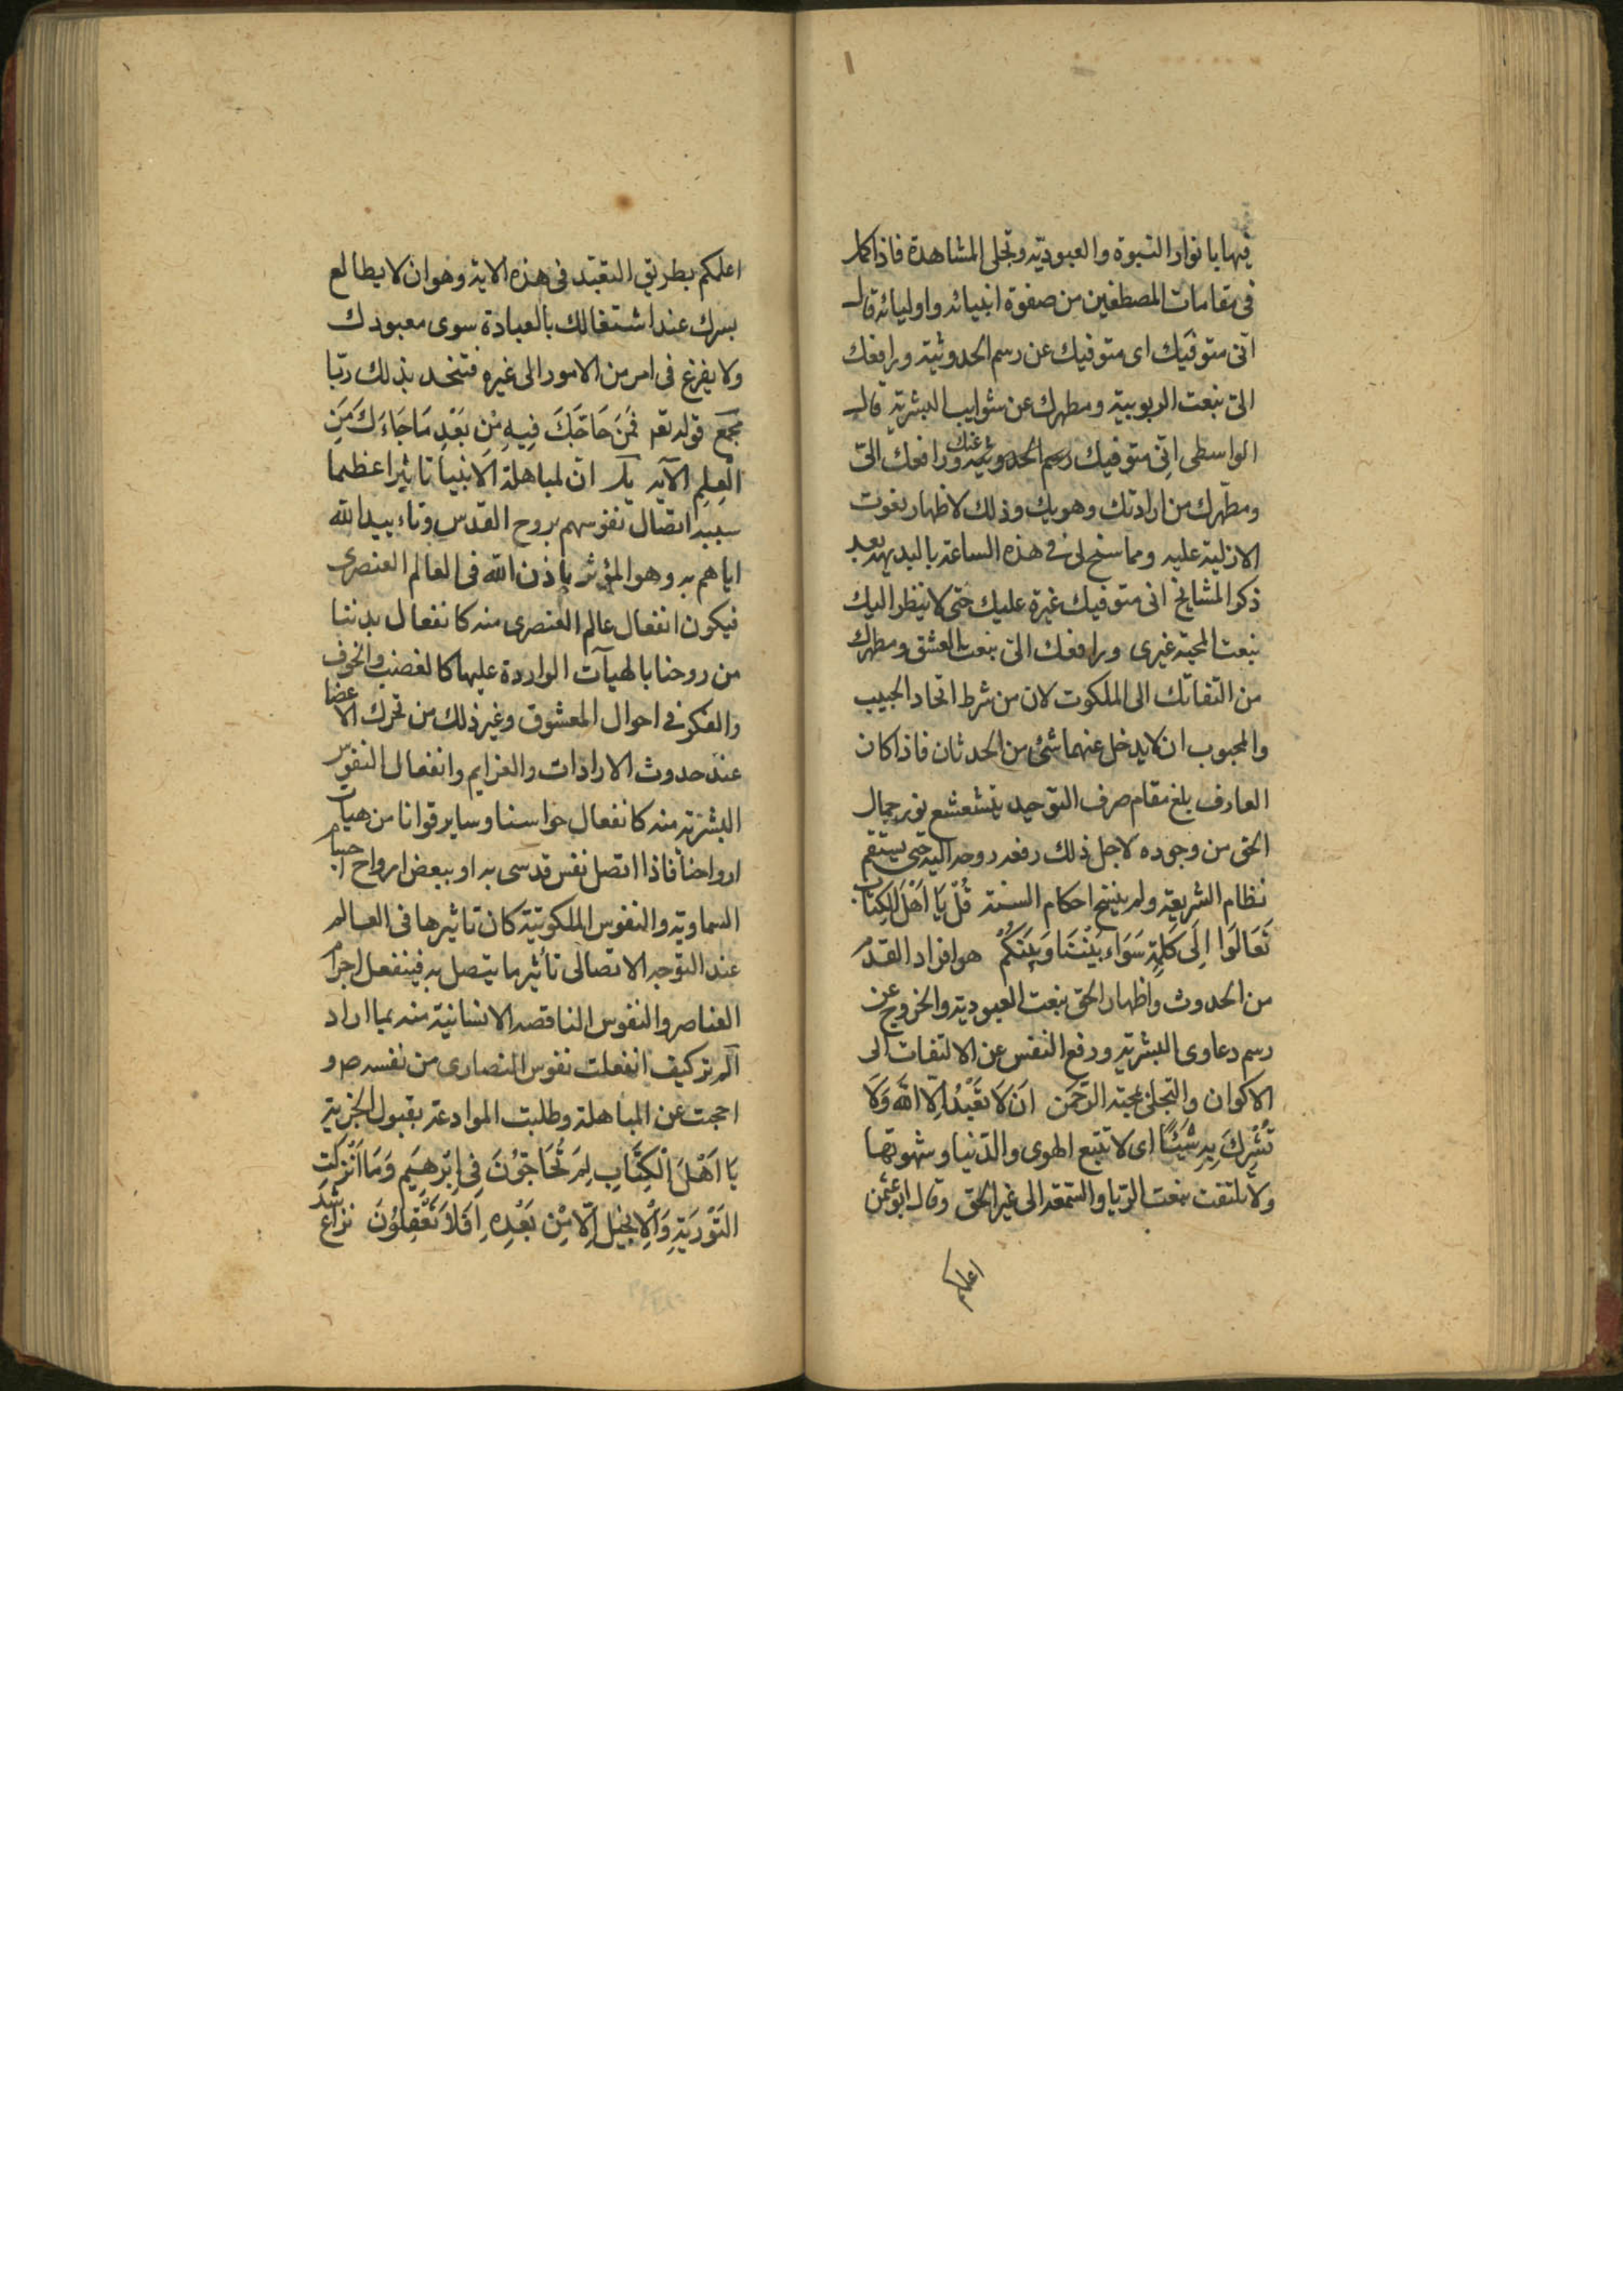 فيها بانوار النبوة والعبودية وتجلى المشاهدة فاذا كمل
فى مقامات المصطفين من صفوة انبيائه واوليائه قال
انى متوفيك اى متوفيك عن رسم الحدوثية ورافعك
الىّ بنعت الربوبية ومطهرك عن شوايب البشرية قال
الواسطى اِنّى متوفيك رسم الحدوثية عنك ورافعك الىّ
ومطهرك من ارادتك وهويك وذلك لاظهار نعوت
الازلية عليه ومما سنح لى فى هذه الساعة بالبديهه بعد
ذكر المشايخ انى متوفيك غيرة عليك حتى لا ينظر اليك
بنعت المحبة غيرى ورافعك الىّ بنعت العشق ومطهرك
من التفاتك الى الملكوت لان من شرط اتحاد الحبيب
والمحبوب ان لا يدخل عنهما شئ من الحدثان فاذا كان
العارف بلغ مقام صرف التوحيد يتشعشع نور جمال
الحق من وجوده لاجل ذلك رفعه روحه اليه حتى يستقم
نظام الشريعة ولم ينسخ احكام السنة قُلْ يَا اَهْلَ الكِتَابِ
تَعَالَوْا اِلَى كَلِمَةٍ سَوَاء بَيْنَنَا وَبَيْنَكُمْ هو افراد القدم
من الحدوث واظهار الحق بنعت العبودية والخروج عن
رسم دعاوى البشرية ورفع النفس عن الالتفات الى
الاكوان والتجلى بمحبة الرَّحْمَن اَنْ لَا نَعْبُدُ اِلَّا اللَّهَ وَلَا
نُشْرِكَ بِهِ شَيْئًا اى لا تتبع الهوى والدّنيا وشهوتها
ولا يلتفت بنعت الرّيا والسّمعة الى غير الحق وقال ابو عثمن
اعلمكم
اعلمكم بطريق التعبّد فى هذه الاية وهو ان لا يطالع
بسرك عند اشتغالك بالعبادة سوى معبودك
ولا يفزع فى امر من الامور الى غيره فتتخد بذلك ربّا
مجمع قوله تعم فَمَنْ حَاجَّكَ فِيهِ مِنْ بَعْدِ مَا جَاءَكَ مِنَ
الْعِلْمِ الآية ان لمباهلة الانبيا تاثيرا عظيما
سببه اتصال نفوسهم بروح القدس وتاءييد الله
اياهم به وهو المؤثر باذن الله فى العالم العنصرى
فيكون انفعال عالم العنصرى منه كانفعال بدننا
من روحنا بالهيآت الواردة عليها كالغضب والخوف
والفكر فى احوال المعشوق وغير ذلك من تحرك الاعضا
عند حدوث الارادات والعزايم وانفعال النفوس
البشرية منه كانفعال حواسنا وساير قوانا من هيات
ارواحنا فاذا اتصل نفس قدسى به او ببعض ارواح اجرام
السماوية والنفوس الملكوتية كان تاثيرها فى العالم
عند التوجه الاتصالى تأثير ما يتصل به فينفعل اجرام
العناصر والنفوس الناقصه الانسانية منه بما اراد
الم تر كيف انفعلت نفوس النصارى من نفسه ص و
احجمت عن المباهلة وطلبت الموادعة بقبول الجزية
يَا اَهْلَ الْكِتَابِ لِمَ تُحَاجُّونَ فِى اِبْرَهِيمَ وَمَا اُنْزِلَتِ
التَّوْرَيةُ وَالْاِنْجِيلُ اِلَّا مِنْ بَعْدِهِ اَفَلَا تَعْقِلُونَ نزاع